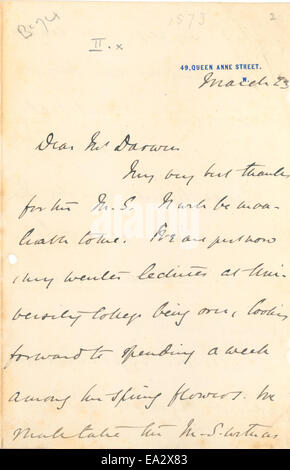 1873
2
II.x
49, QUEEN ANNE STREET,
W.
March 23
Dear Mr Darwin
My very best thanks
for the M.S. It will be inva-
luable to me. We are just now
, my winter lectures at Uni-
versity College being over, looking
forward to spending a week
among the spring flowers. We
shall take the M.S. with us
alamy
alamy stock photo
EA2X83